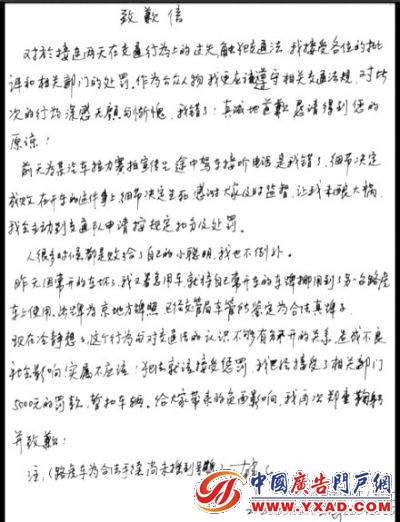 致歉信
对於接连两天在交通行为上的过失,触犯交通法,我接受各位的批
评和相关部门的处罚。作为公众人物我更应该遵守相关交通法规,对此
次的行为深感无颜与惭愧,我错了!真诚地首歉恳请得到您的
原谅!
前天为某汽车接力赛拍宣传片途中驾车接听电话是我错了,细节决定
成败,在开车的这件事上细节决定生死,感谢大家及时监督,让我未酿大祸,
我会主动到交通队申请按规定扣分及处罚。
人很多时候都是败给了自己的小聪明,我也不例外。
昨天因常开的车坏了,我又着急用车就将自己常开车的车牌挪用到了另一台路虎
车上使用。此牌为京地方牌照,已经交管局车管所鉴定为合法真牌子
现在冷静想了,这个行为与对交通法的认识不够有分不开的关系,造成不良
社会影响!实属不应该!犯法就该接受惩罚,我已经接受了相关部门
5000元的罚款,暂扣车辆。给大家带来的负面影响,我再次郑重鞠躬
并致歉!
注:(路虎车为合法手续尚未
中國廣告門戶網
WWW.YXAD.COM